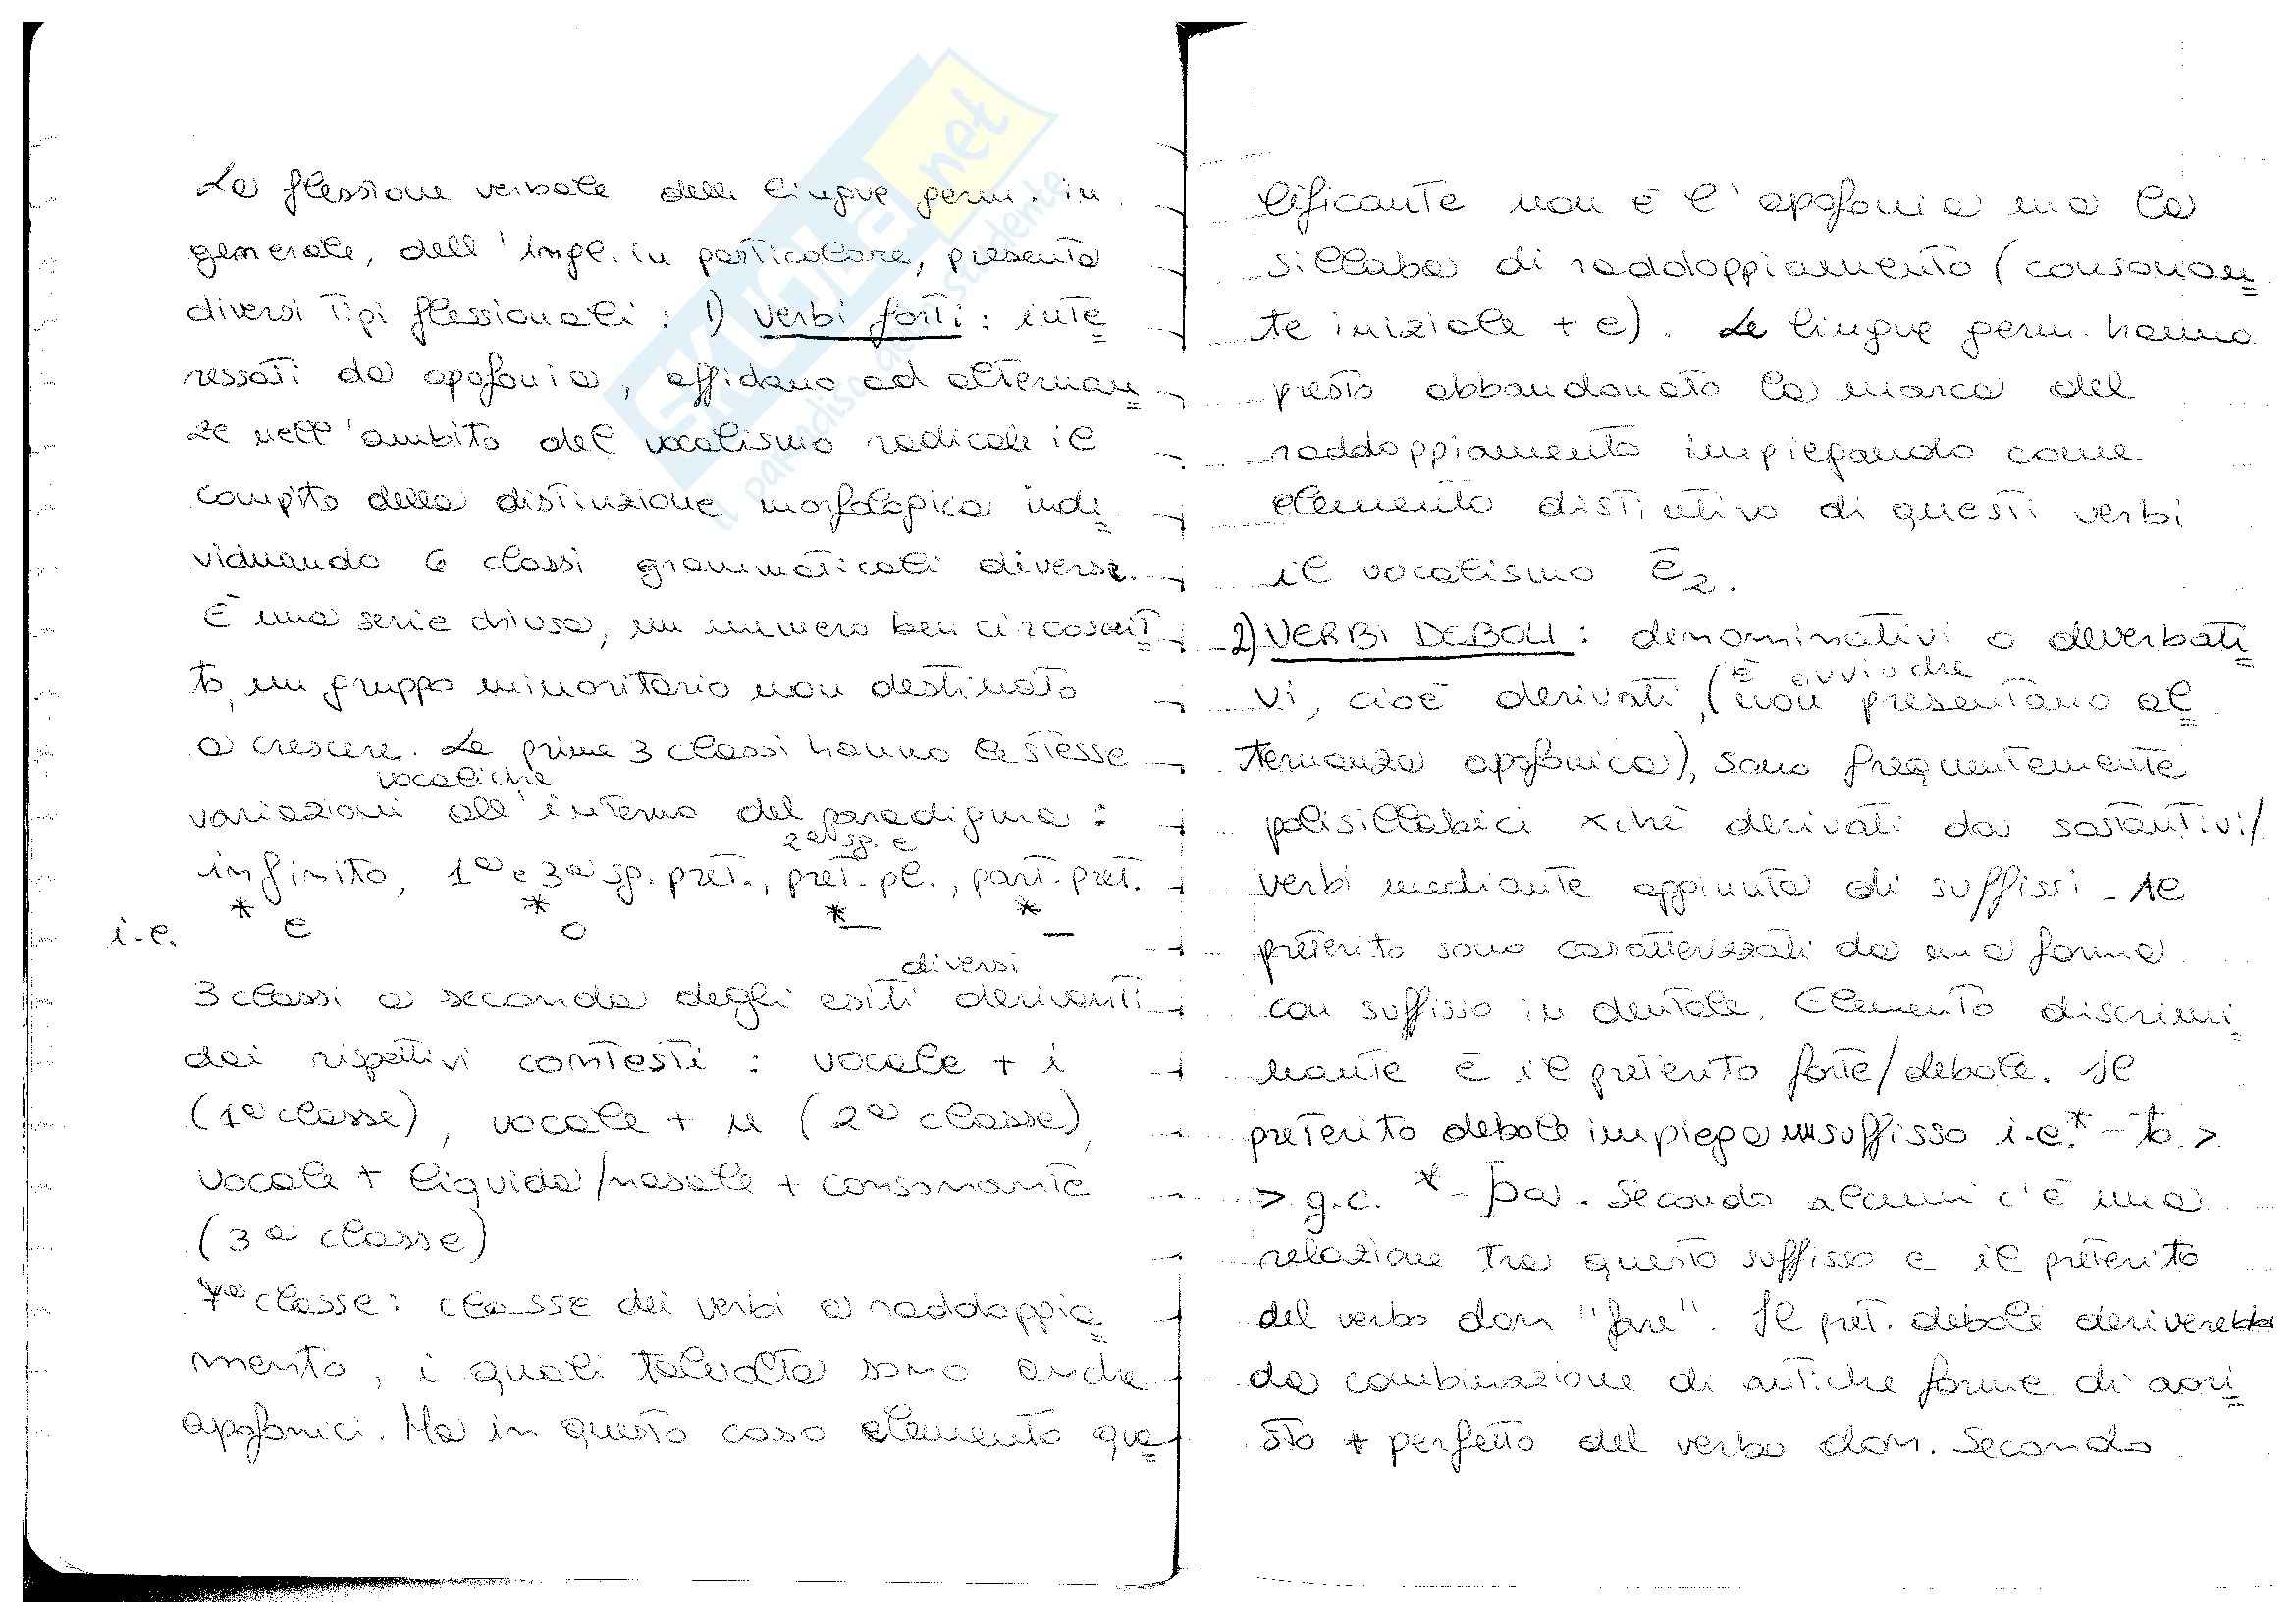 La flessione verbale delle lingue germ. in
generale, dell'ingl. in particolare, presenta
diversi tipi flessionali: 1) verbi forti: inte=
ressati da apofonia, affidano ad alternan=
ze nell'ambito del vocalismo radicale il
compito della distinzione morfologica indi=
viduando 6 classi grammaticali diverse.
È una serie chiusa, un numero ben circoscrit=
to, un gruppo minoritario non destinato
a crescere. Le prime 3 classi hanno le stesse
vocaliche
variazioni all'interno del paradigma:
2a sg. e
infinito, 1a e 3a sg. pret., pret. pl., part. pret.
i.e. *e *o *— *—
diversi
3 classi a seconda degli esiti derivanti
dai rispettivi contesti: vocale + i
(1a classe), vocale + u (2a classe),
vocale + liquida/nasale + consonante
(3a classe)
7a classe: classe dei verbi a raddoppia=
mento, i quali talvolta sono anche
apofonici. Ma in questo caso elemento qua=
lificante non è l'apofonia ma la
sillaba di raddoppiamento (consonan=
te iniziale + e). Le lingue germ. hanno
presto abbandonato la marca del
raddoppiamento impiegando come
elemento distintivo di questi verbi
il vocalismo ē2.
2) VERBI DEBOLI: denominativi o deverbati=
è ovvio che
vi, cioè derivati, (non presentano al=
ternanza apofonica), sono frequentemente
polisillabici xchè derivati da sostantivi/
verbi mediante aggiunta di suffissi - Al
preterito sono caratterizzati da una forma
con suffisso in dentale. Elemento discrimi=
nante è il preterito forte/debole. Il
preterito debole impiega un suffisso i.e. *-to >
> g.c. *-þa. Secondo alcuni c'è una
relazione tra questo suffisso e il preterito
del verbo don "fare". Il pret. debole deriverebbe
da combinazione di antiche forme di aori=
sto + perfetto del verbo don. Secondo
SKUOLA.net
il paradiso dello studente